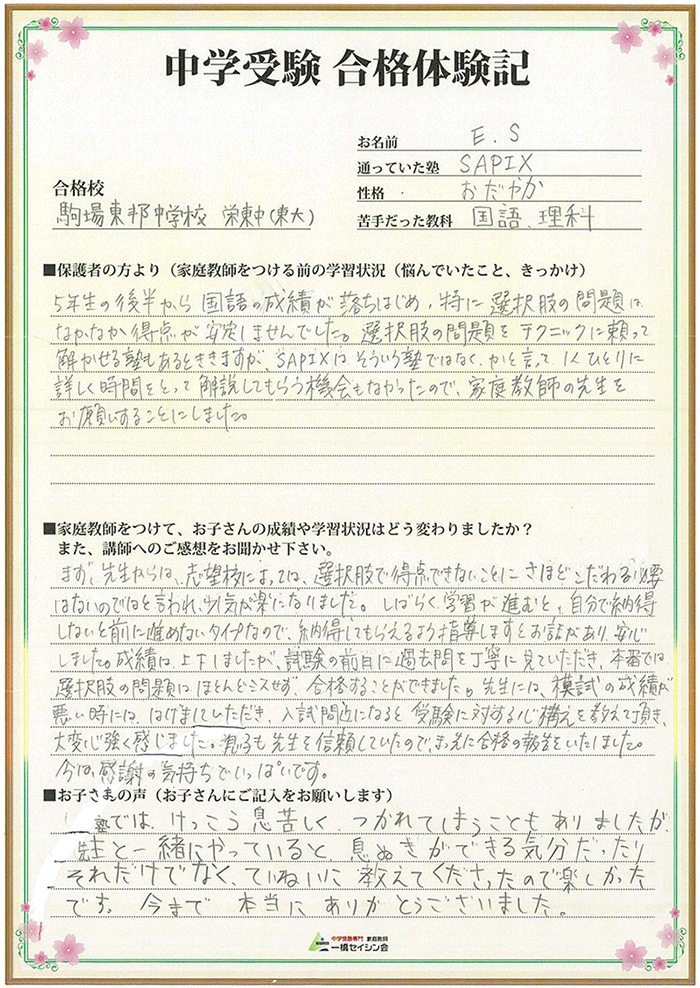 中学受験 合格体験記
お名前 E.S
通っていた塾 SAPIX
性格 おだやか
苦手だった教科 国語、理科
合格校
駒場東邦中学校 栄東中(東大)
■保護者の方より（家庭教師をつける前の学習状況（悩んでいたこと、きっかけ）
5年生の後半から国語の成績が落ちはじめ、特に選択肢の問題は、
なかなか得点が安定しませんでした。選択肢の問題をテクニックに頼って
解かせる塾もあるとききますが、SAPIXはそういう塾ではなく、かと言って1人ひとりに
詳しく時間をとって解説してもらう機会もなかったので、家庭教師の先生を
お願いすることにしました。
■家庭教師をつけて、お子さんの成績や学習状況はどう変わりましたか？
また、講師へのご感想をお聞かせ下さい。
まず、先生からは、志望校によっては、選択肢で得点できないことにさほどこだわる必要
はないのではと言われ、少し気が楽になりました。しばらく学習が進むと、自分で納得
しないと前に進めないタイプなので、納得してもらえるよう指導しますとお話があり、安心
しました。成績は上下しましたが、試験の前日に過去問を丁寧に見ていただき、本番では
選択肢の問題は、ほとんどミスせず、合格することができました。先生には、模試の成績が
悪い時には、はげましていただき、入試間近になると受験に対する心構えを教えて頂き、
大変心強く感じました。親子も先生を信頼していたので、まっ先に合格の報告をいたしました。
今は、感謝の気持ちでいっぱいです。
■お子さんの声（お子さんにご記入をお願いします）
塾では、けっこう息苦しく、つかれてしまうこともありましたが、
先生と一緒にやっていると、息ぬきができる気分だったり
それだけでなく、ていねいに教えてくださったので楽しかった
です。今まで本当にありがとうございました。
中学受験専門 家庭教師
一橋セイシン会